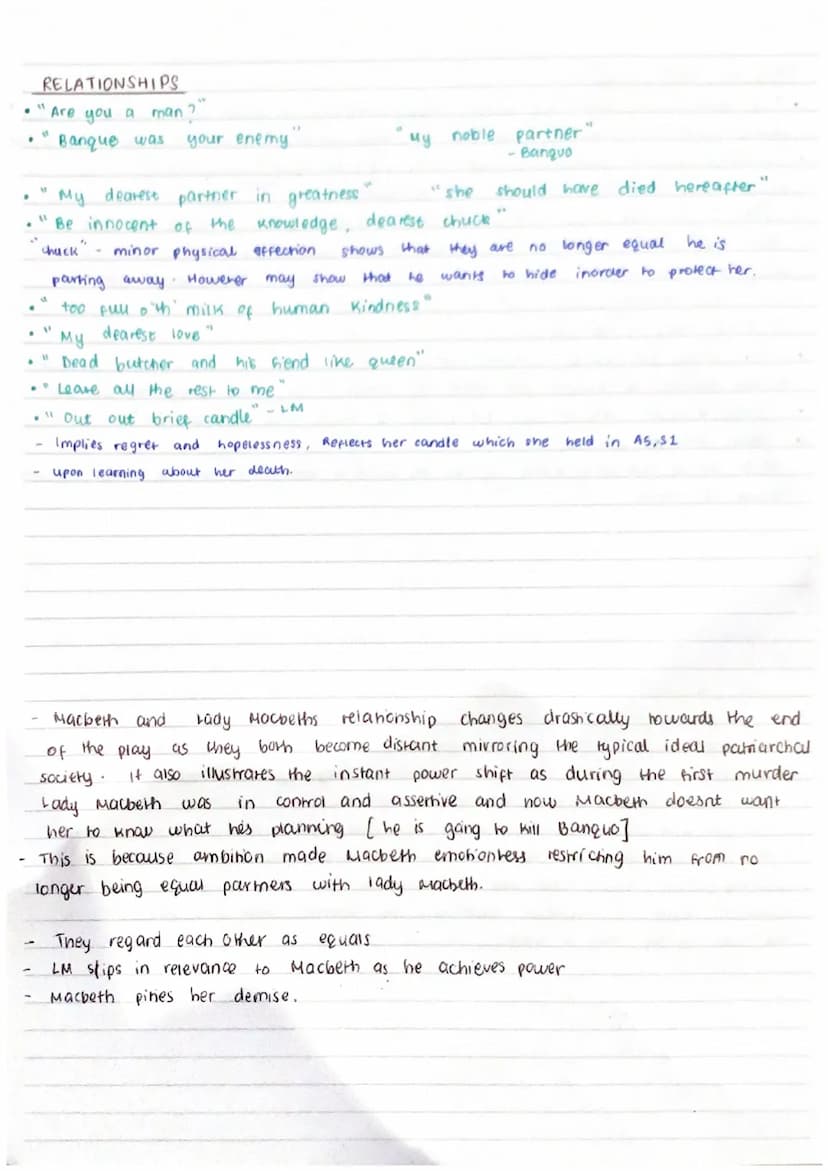 RELATIONSHIPS
• "Are you a man?"
• "Banquo was your enemy" "My noble partner"
- Banquo
• "My dearest partner in greatness" "she should have died hereafter"
• "Be innocent of the knowledge, dearest chuck"
"chuck" - minor physical affection shows that they are no longer equal he is
parting away. However may show that he wants to hide inorder to protect her.
• "too full o'th' milk of human kindness"
• "My dearest love"
• "Dead butcher and his fiend like queen"
• "Leave all the rest to me"
• "Out out brief candle" - LM
- Implies regret and hopelessness, Reflects her candle which she held in A5,S1
- upon learning about her death.
- Macbeth and Lady Macbeths relationship changes drastically towards the end
of the play as they both become distant mirroring the typical ideal patriarchal
society. It also illustrates the instant power shift as during the first murder
Lady Macbeth was in control and assertive and now Macbeth doesnt want
her to know what hes planning [he is going to kill Banquo]
- This is because ambition made Macbeth emotionless restricting him from no
longer being equal partners with lady Macbeth.
- They regard each other as equals
- LM slips in relevance to Macbeth as he achieves power
- Macbeth pities her demise.